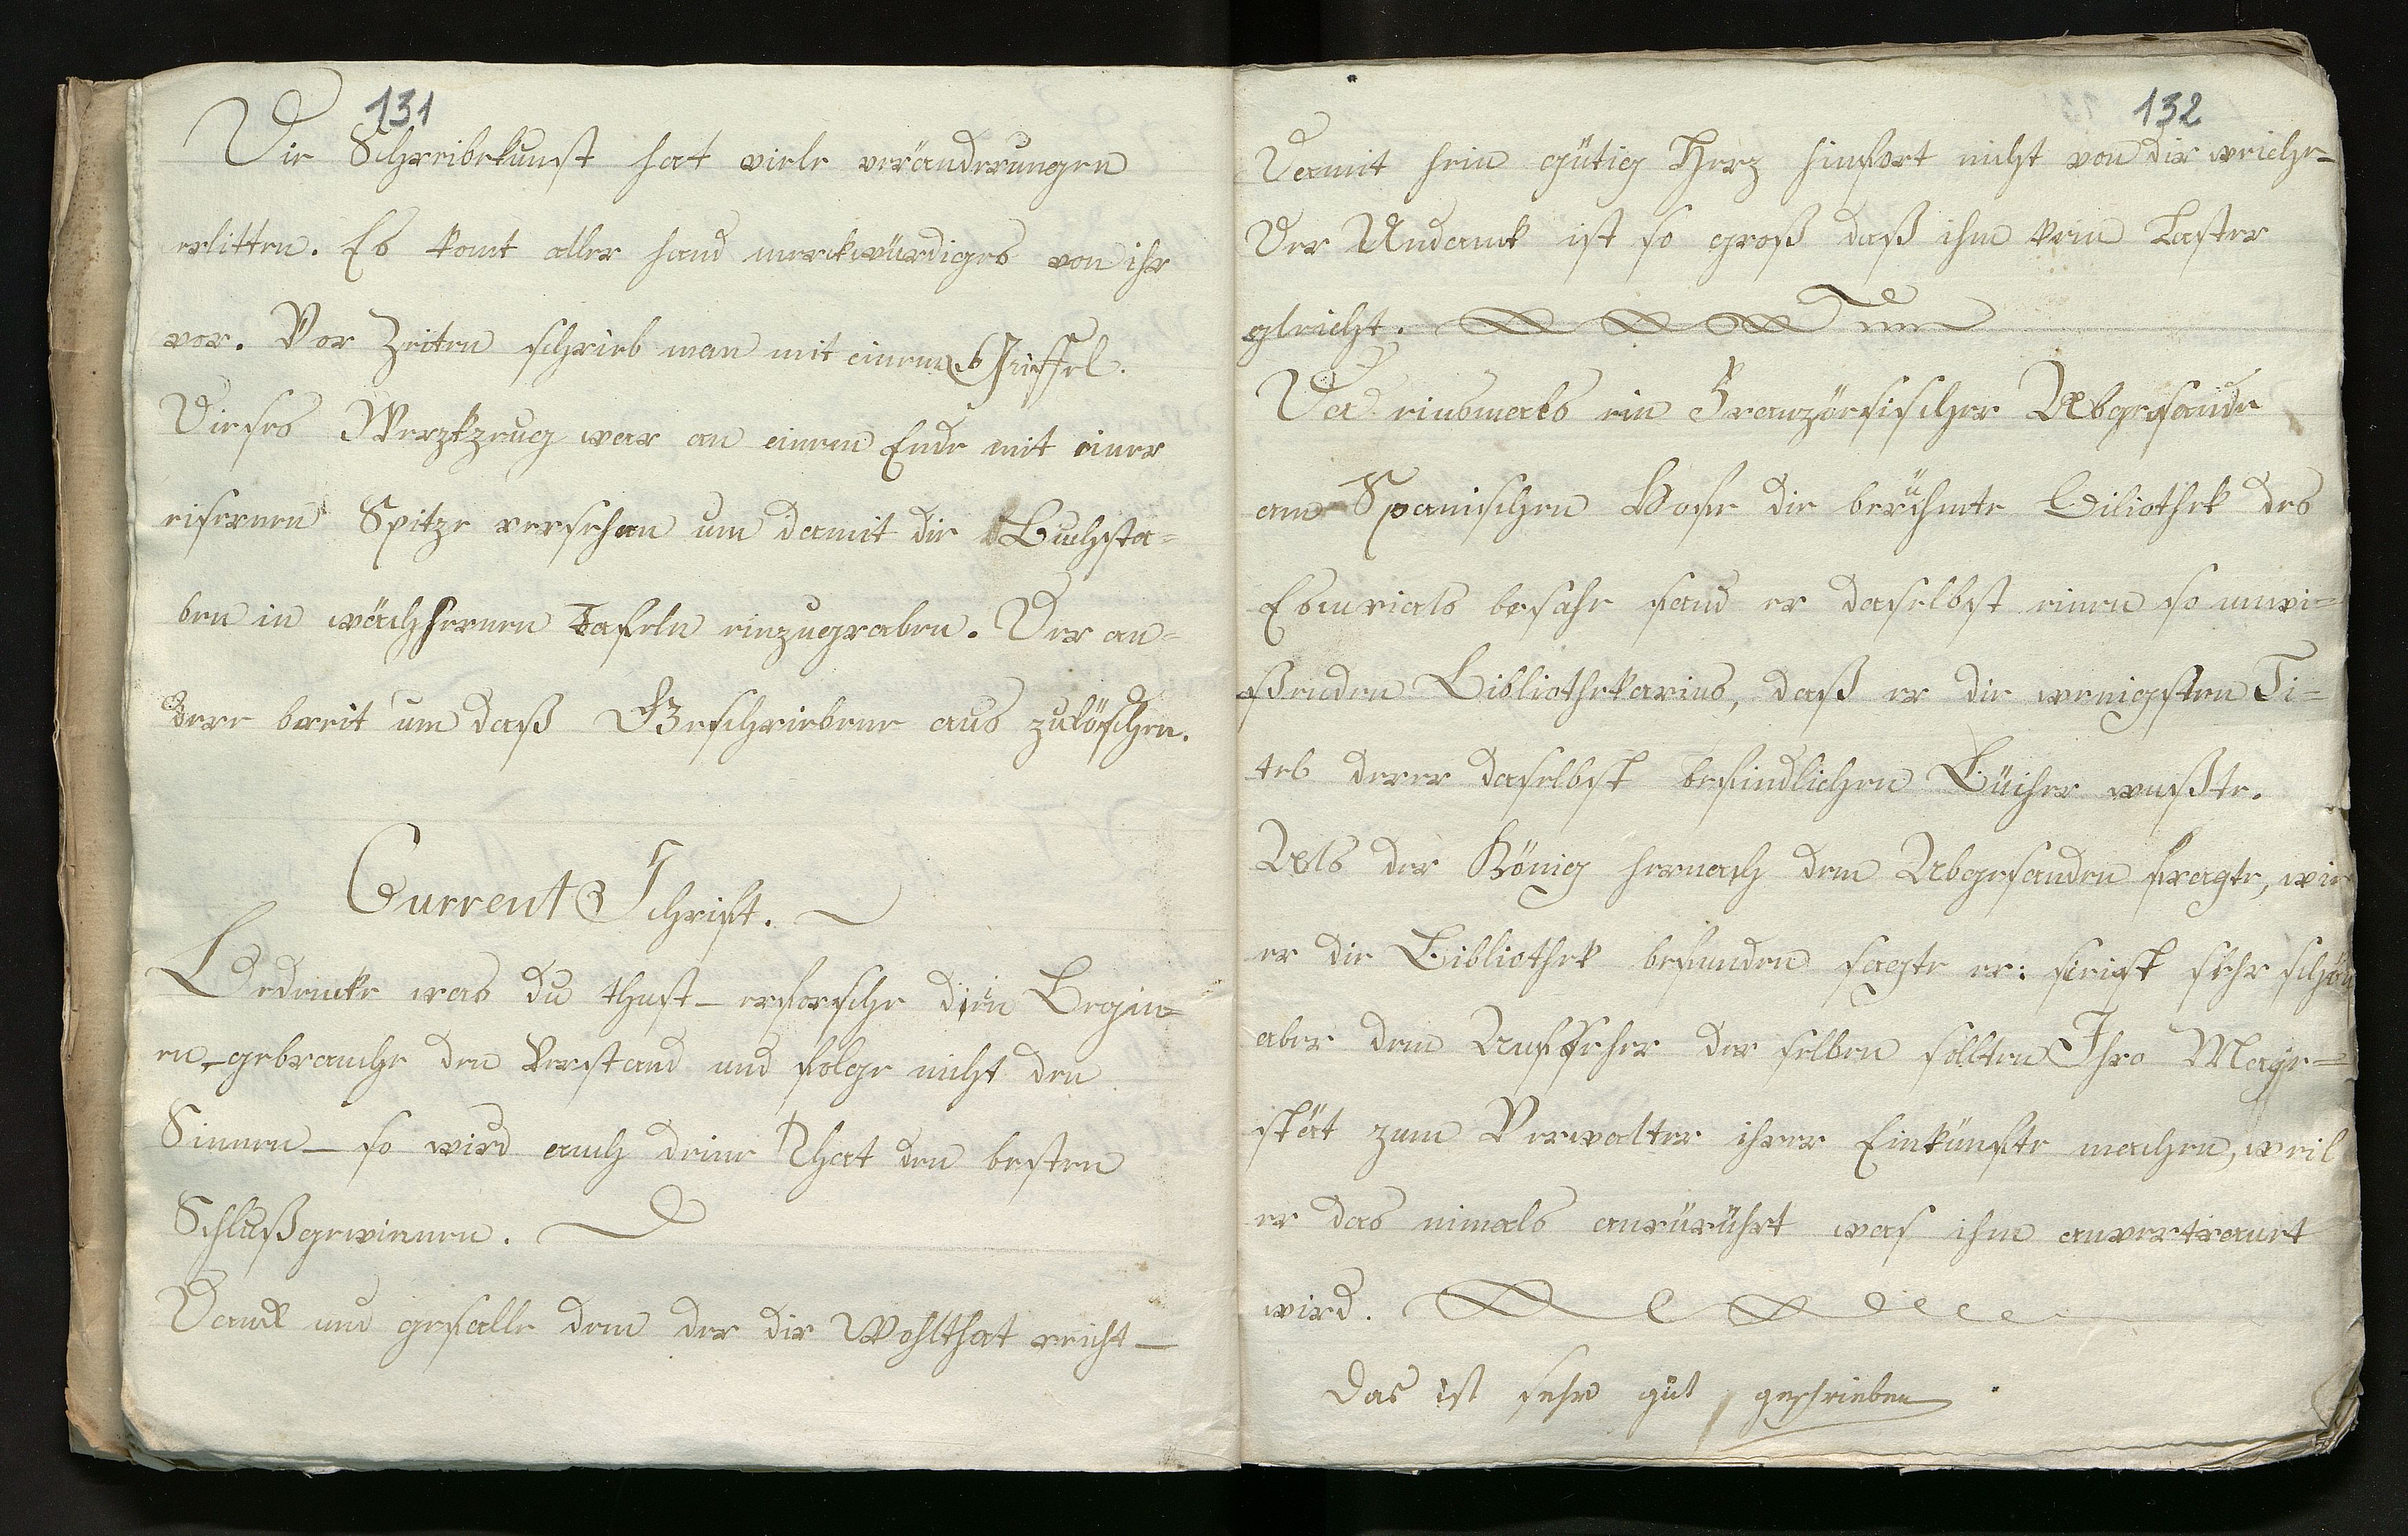 131
Die Schreibekunst hat viele veränderungen
erlitten. Es komt aller hand merckwürdiges von ihr
vor. Vor Zeiten schrieb man mit einem Griffel.
Dieses Werzkzeug war an einem Ende mit einer
eisernen Spitze versehen um damit die Buchsta=
ben in wächsernen Tafeln einzugraben. Der an=
dere breit um daß Geschriebene aus zulöschen.
Current Schrift.
Bedencke was du thust - erforsche dein Begin=
en - gebrauche den Verstand und folge nicht den
Sinnen - so wird auch deine That den besten
Schlußgewinnen.
Danck und gefalle dem der dir Wohlthat reicht -
132
Damit sein gütig Herz hinfort nicht von dir weiche -
Der Undanck ist so groß daß ihm kein Laster
gleicht.
Da einsmals ein Französischer Abgesande
am Spanischen Hofe die berühmte Biliothek des
besahe fand er daselbst einen so unwi=
ßenden Bibliothekarius, daß er die wenigsten Ti=
tel derer daselbst befindlichen Bücher wußte.
Als der König hernach dem Abgesanden fragte, wie
er die Bibliothek befunden sagte er: sehr schön
aber dem Aufseher der selben sollten Ihro Maye=
stät zum Verwalter ihrer Einkünfte machen, weil
er das nimals was ihm anvertrauet
wird.
Das ist sehr gut geschrieben